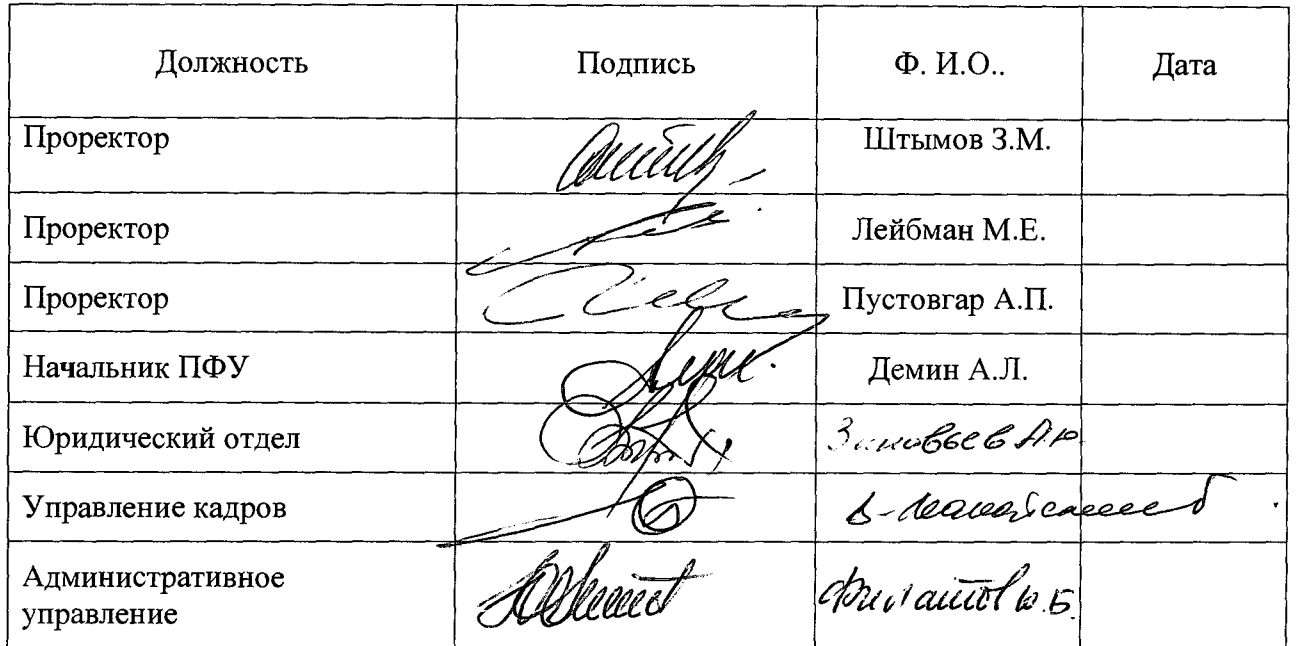 Должность Подпись Ф. И.О.. Дата
Проректор Штымов З.М.
Проректор Лейбман М.Е.
Проректор Пустовгар А.П.
Начальник ПФУ Демин А.Л.
Юридический отдел Зиновьев А.Ю
Управление кадров
Административное
управление Филатов Ю.Б.